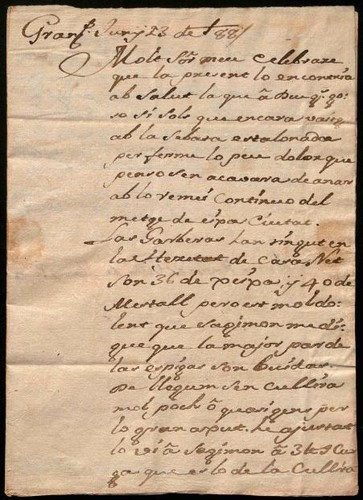 Granʳ Juny 23 de 1787
Molt Sʳ meu Celebrare
que la present lo encontria
ab Salut la que â Deu gᵃ go-
so si sols que encara vaitg
ab la Sabara estalonada
per ferme lo peu dolor que
penso sen acavara de anar
ab lo remei Continuo del
metge de eixa Ciutat.
Las Garberas han vingut en
la Heretat de Casa Net
son 36 de xexxa, y 40 de
Mestall pero est mol do-
lent que Sagimon me di-
gue que la major par de
las espigas son buidas.
De llegum sen Cullira
mol poch ô quasi gens per
lo gran aixut. he ajustat
lo vi â Segimon â 3 ll
ga que es lo de la Cullita